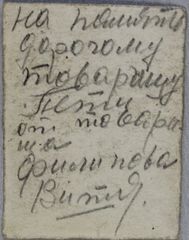 на память
дорогому
товарищу
Пети
от товари
ща
Филипова
Витя.